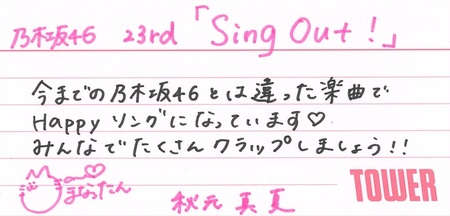 乃木坂46 23rd「Sing Out!」
今までの乃木坂46とは違った楽曲で
Happyソングになっています♡
みんなでたくさんクラップしましょう!!
まなったん
秋元真夏
TOWER